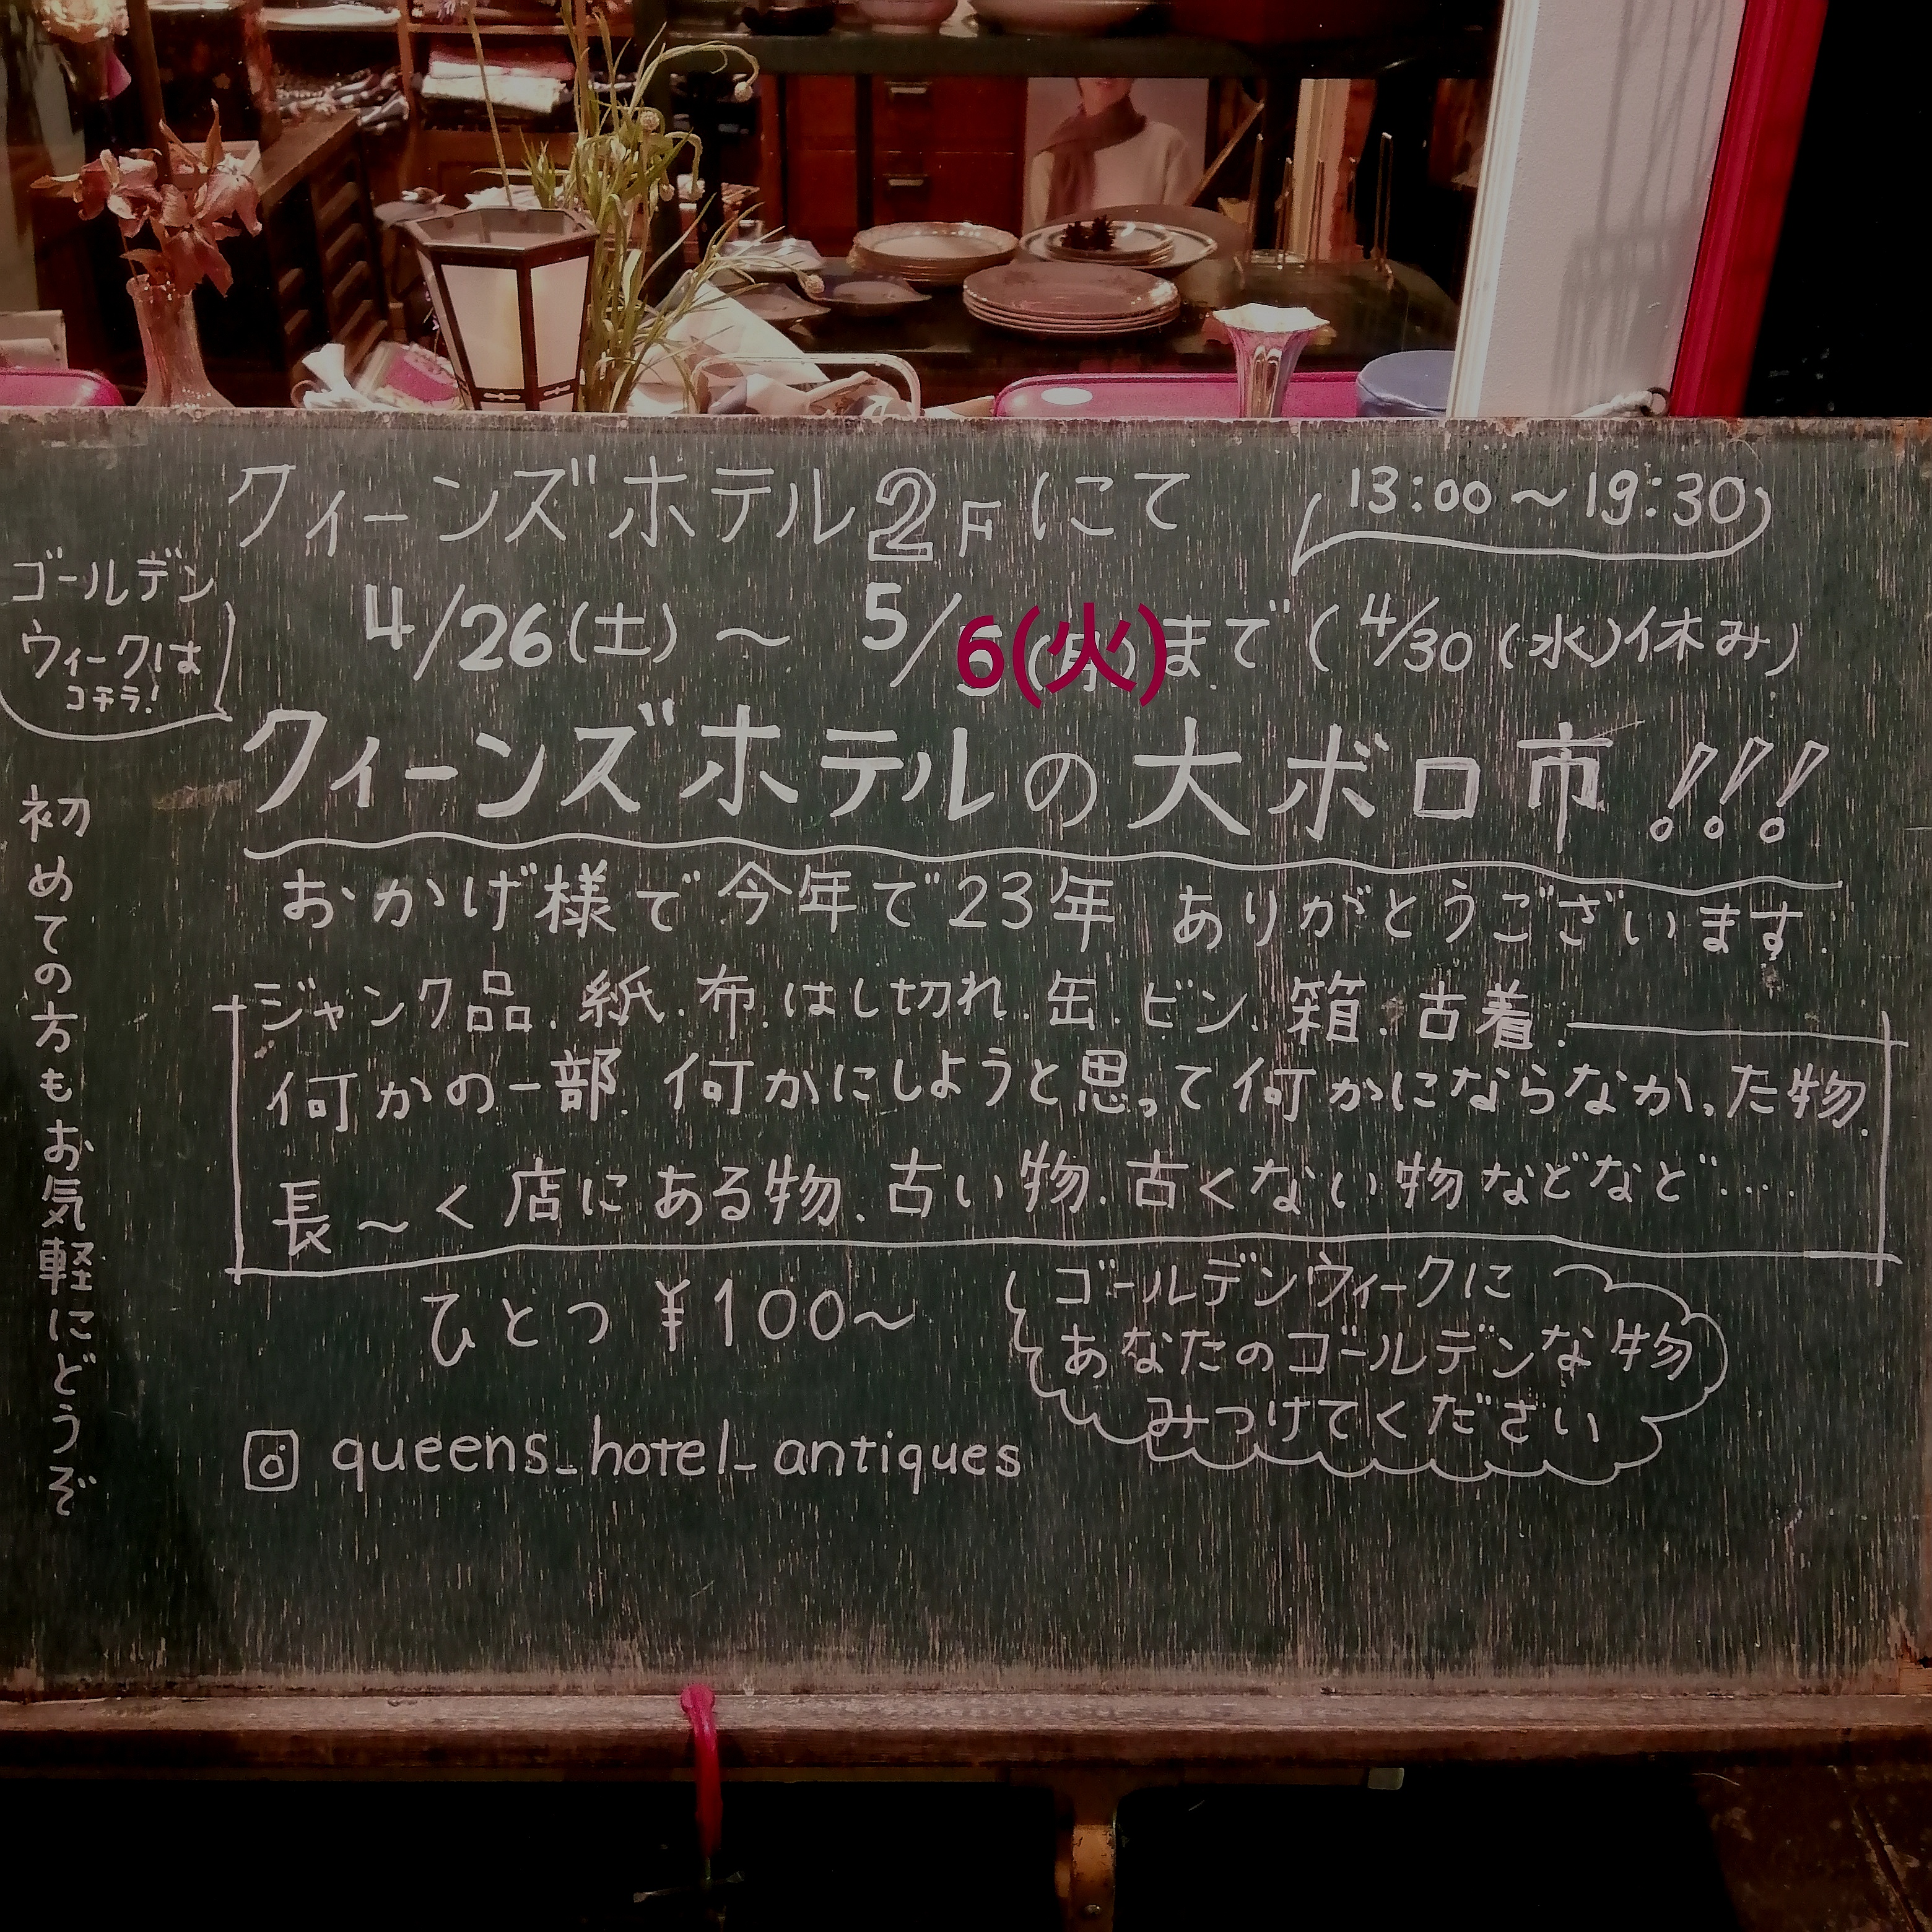 クィーンズホテル2Fにて
13:00〜19:30
ゴールデン
ウィークは
コチラ!
4/26(土)〜 5/6(火)まで(4/30(水)休み)
クィーンズホテルの大ボロ市!!!
おかげ様で今年で23年 ありがとうございます.
ジャンク品.紙.布.はし切れ.缶.ビン.箱.古着.
何かの一部.何かにしようと思って何かにならなかった物.
長〜く店にある物.古い物.古くない物などなど....
ひとつ ¥100〜
ゴールデンウィークに
あなたのゴールデンな物
みつけてください
queens_hotel_antiques
初めての方もお気軽にどうぞ